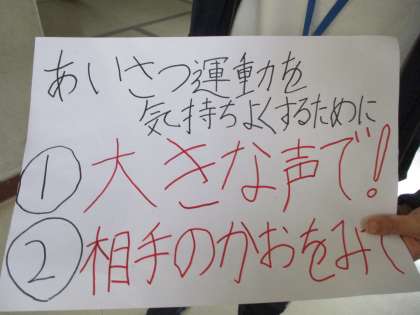 あいさつ運動を
気持ちよくするために
① 大きな声で!
② 相手のかおをみて